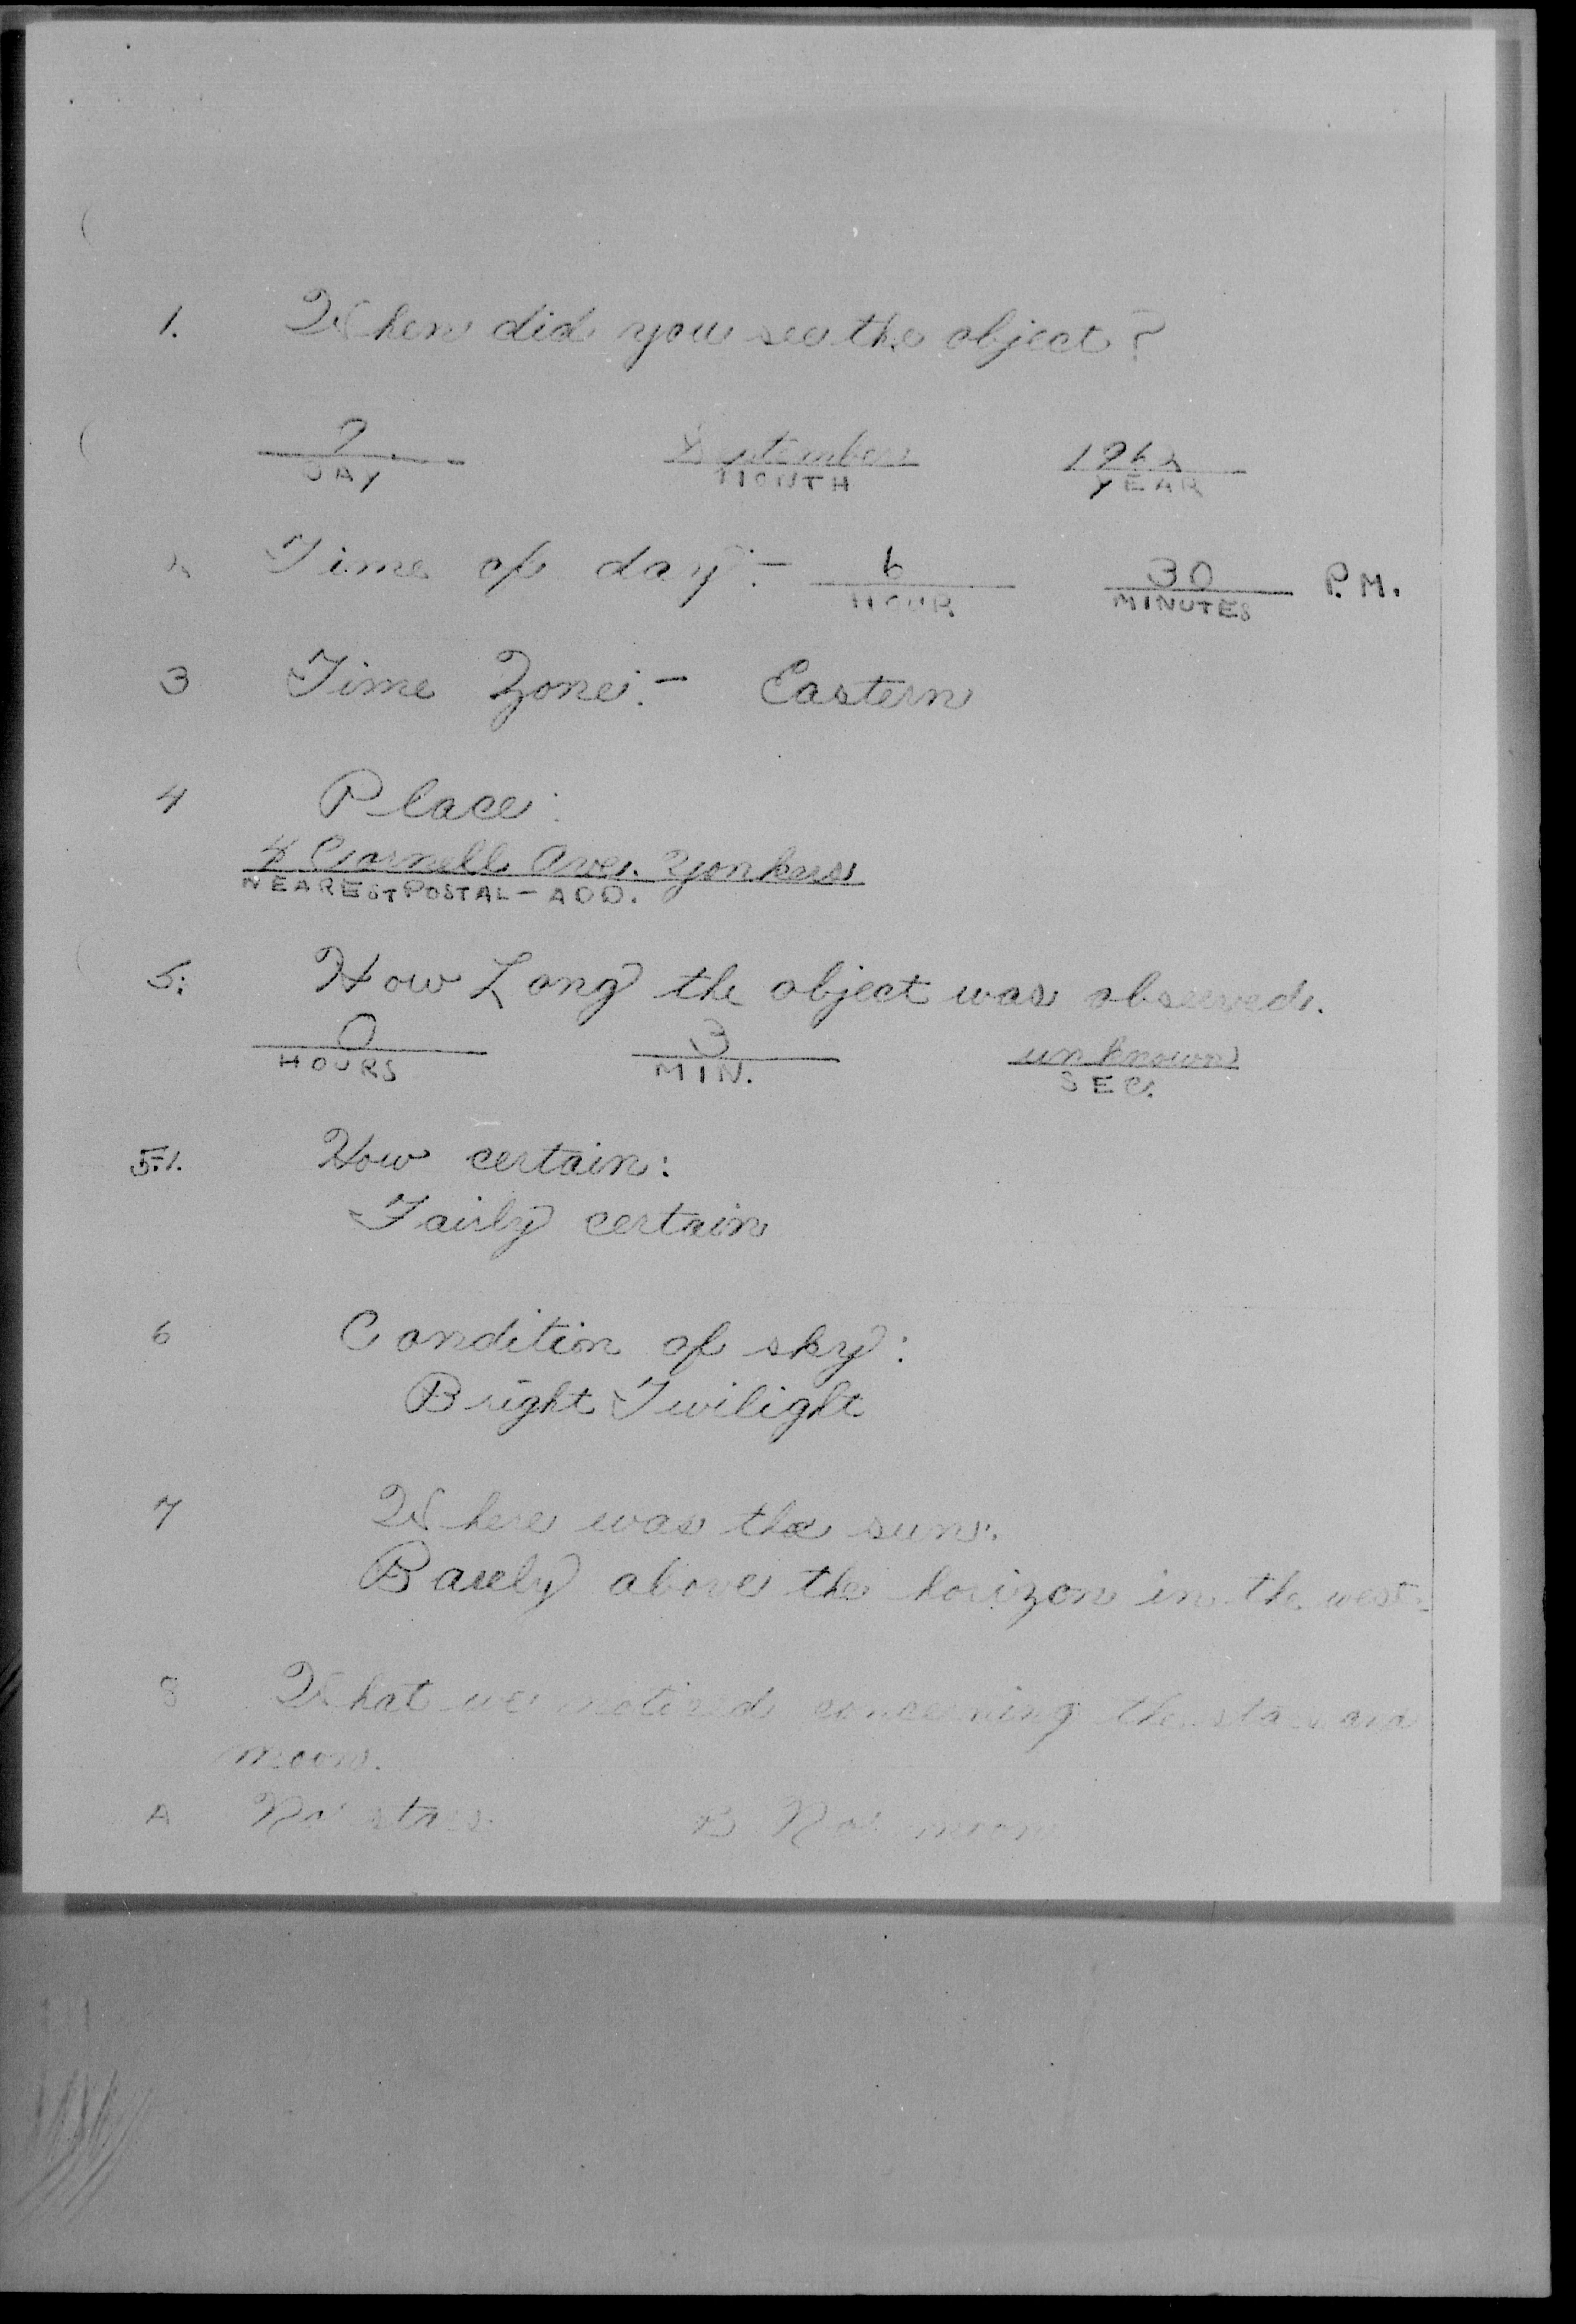 1. When did you see the object?
9 September 1962
DAY MONTH YEAR
2 Time of day:- 6 30 P.M.
HOUR MINUTES
3 Time Zone:- Eastern
4 Place:
4 Cornell Ave. Yonkers
NEAREST POSTAL - ADD.
5. How Long the object was observed.
0 3 unknown
HOURS MIN. SEC.
5.1. How certain:
Fairly certain
6 Condition of sky:
Bright Twilight
7 Where was the sun:
Barely above the horizon in the west.
8 What we noticed concerning the stars and
moon.
A No stars B No moon